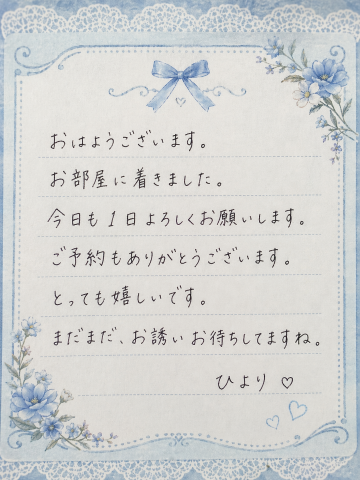 おはようございます。
お部屋に着きました。
今日も1日よろしくお願いします。
ご予約もありがとうございます。
とっても嬉しいです。
まだまだ、お誘いお待ちしてますね。
ひより♡